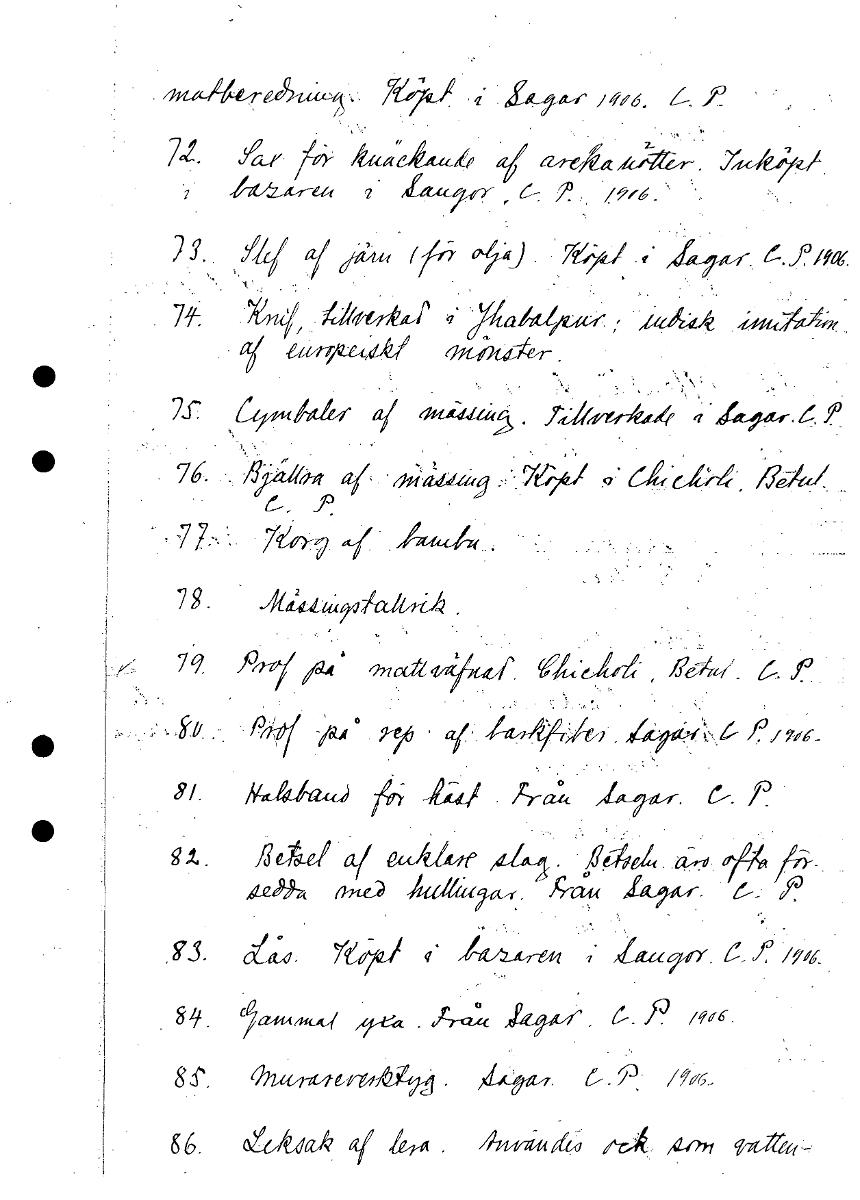 matberedning. Köpt i Sagar 1906. C. P.
72. Sax för knäckande af arekanötter. Inköpt
i bazaren i Saugor. C. P. 1906.
73. Slef af järn (för olja) Köpt i Sagar C. P. 1906.
74. Knif, tillverkad i Jhabalpur; indisk imitation
af europeiskt mönster.
75. Cymbaler af mässing. Tillverkade i Sagar. C. P.
76. Bjällra af mässing. Köpt i Chicholi, Betul.
C. P.
77. Korg af bambu.
78. Mässingstallrik.
79. Prof på mattväfnad. Chicholi, Betul. C. P.
80. Prof på rep af barkfiber Sagar. C P. 1906.
81. Halsband för häst. Från Sagar. C. P.
82. Betsel af enklare slag. Betseln äro ofta för-
sedda med hullingar. Från Sagar. C. P.
83. Lås. Köpt i bazaren i Saugor. C. P. 1906.
84. Gammal yxa. Från Sagar. C. P. 1906.
85. Murareverktyg. Sagar. C. P. 1906.
86. Leksak af lera. Användes ock som vatten-